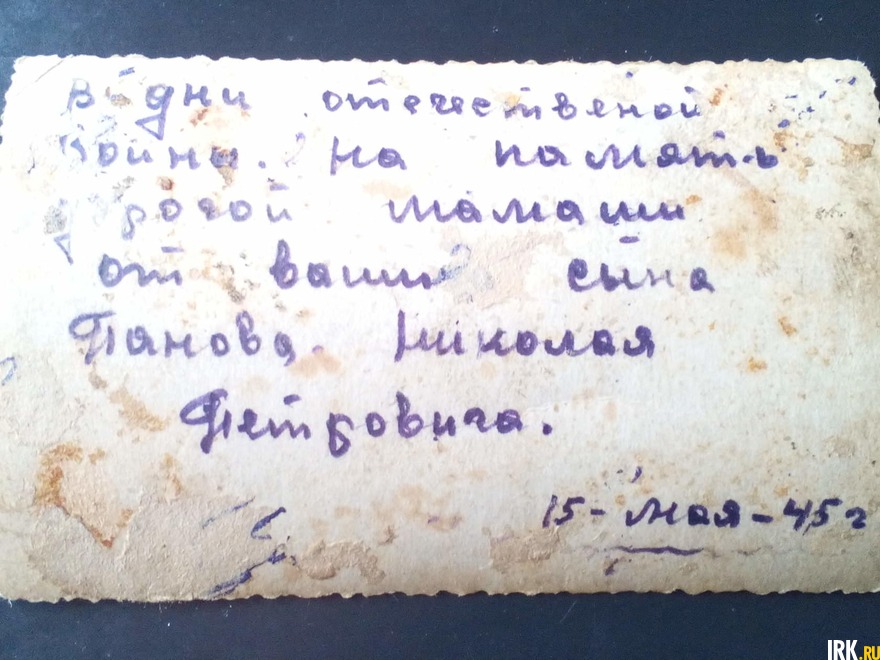 в дни отечественой
войны. на память
дорогой мамаши
от ваши сына
Панова. Николая
Петровича.
15-мая-45г
IRK.RU